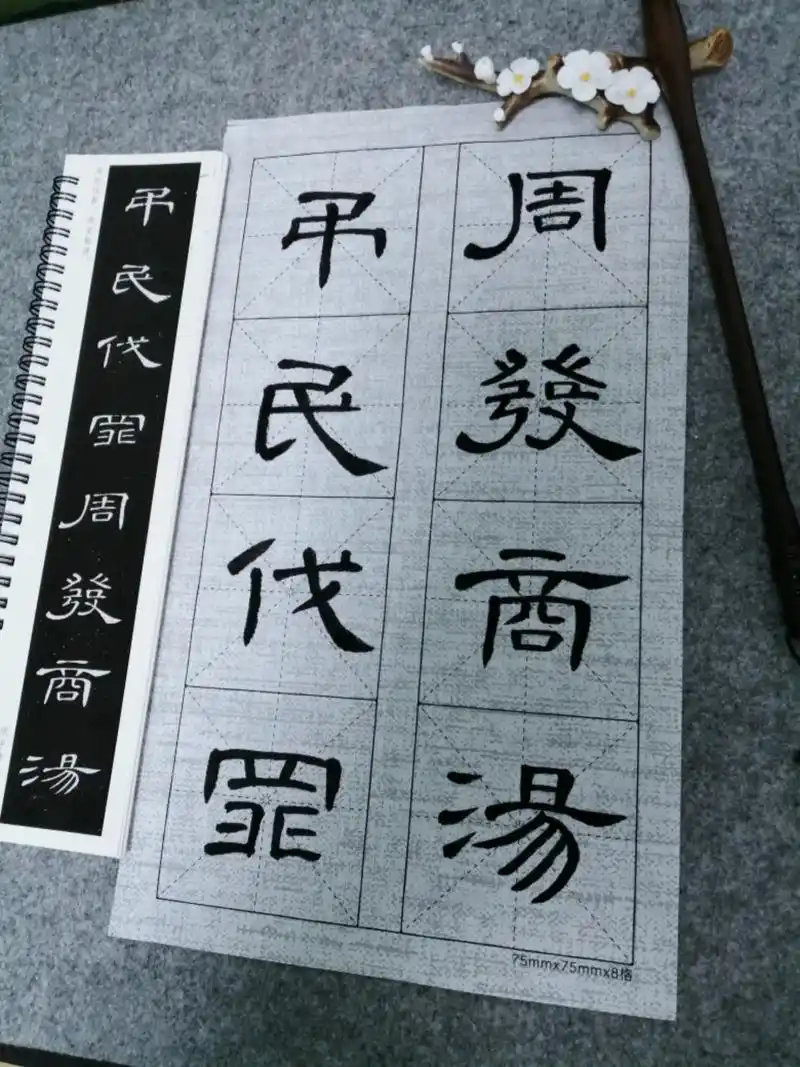 弔民伐罪周發商湯
周發商湯
弔民伐罪
75mmx75mmx8格